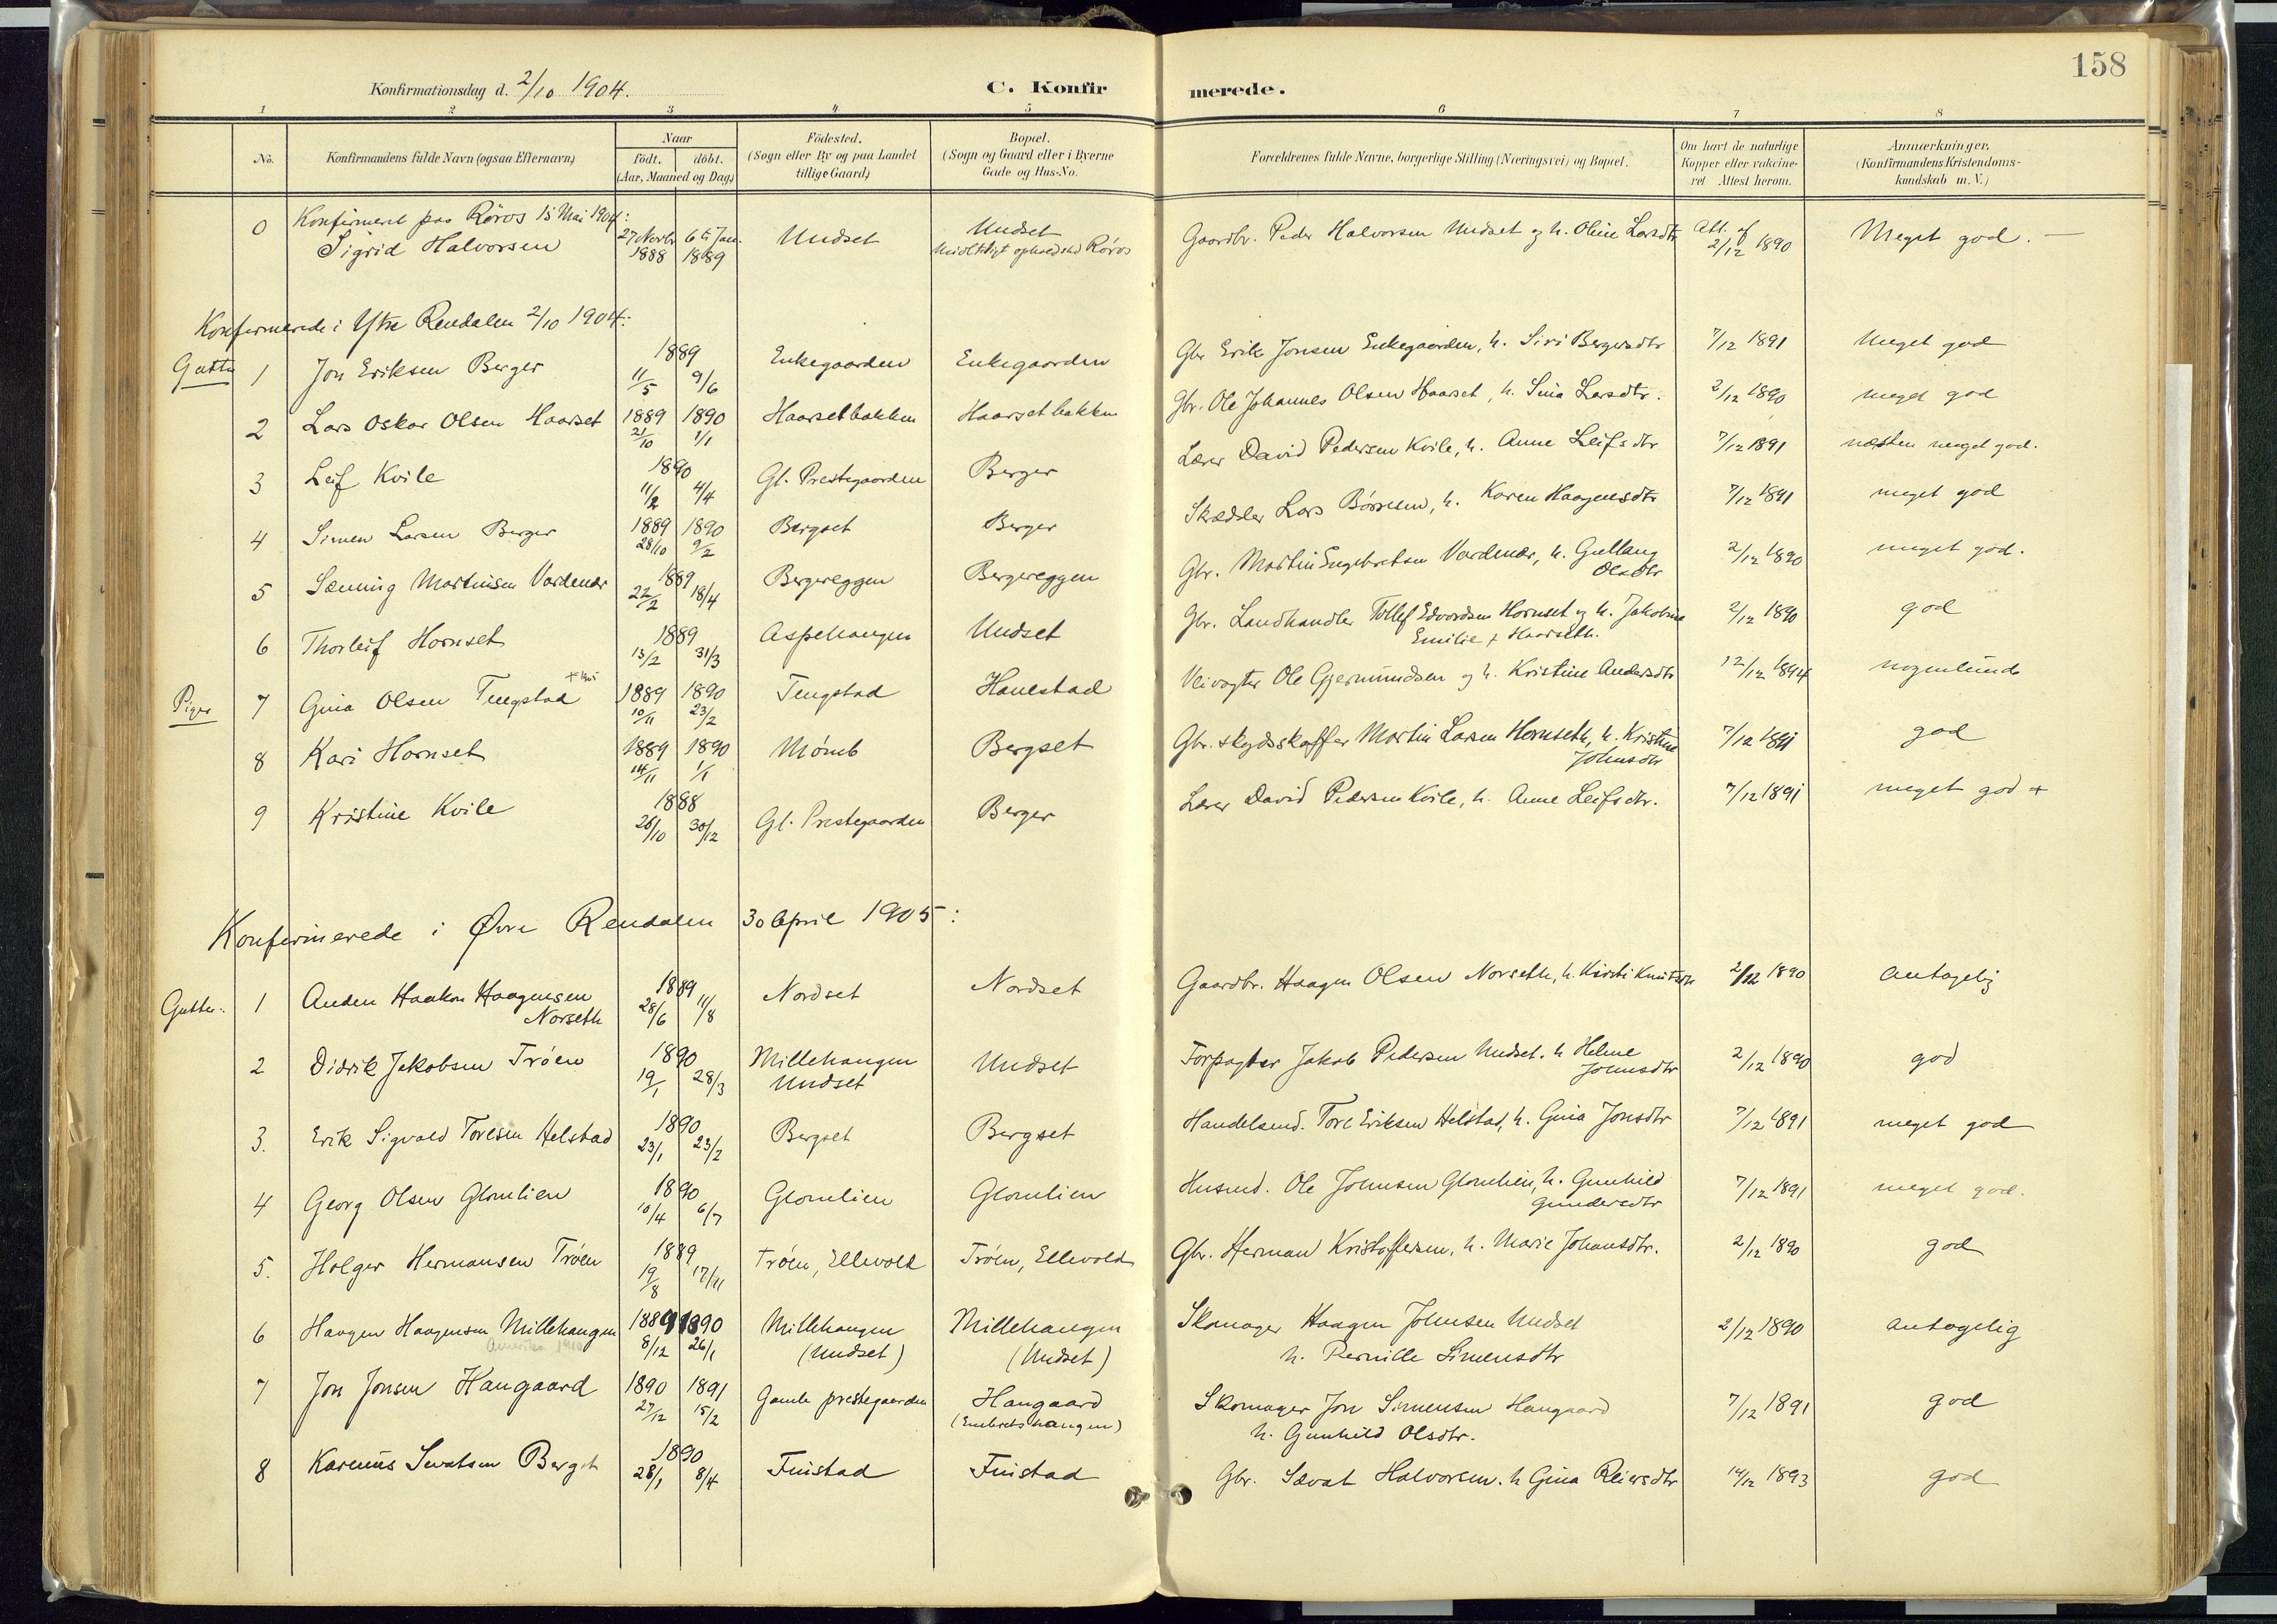 158
Konfirmationsdag d. 2/10 1904. C. Konfirmerede.
1 2 3 4 5 6 7 8
No. Konfirmandens fulde Navn (ogsaa Efternavn) Naar födt. döbt. (Aar, Maaned og Dag) Födested. (Sogn eller By og paa Landet tillige Gaard) Bopæl. (Sogn og Gaard eller i Byerne Gade og Hus-No. Forældrenes fulde Navne, borgerlige Stilling (Næringsvei) og Bopæl. Om havt de naturlige Kopper eller vakcineret Attest herom. Anmærkninger. (Konfirmandens Kristendomskundskab m. V.)
Konfirmeret paa Röros 15 Mai 1904:
0 Sigrid Halvorsen 27 Novbr 1888 6te Jan. 1889 Undset Undset Midltidigt ophold ved Röros Gaardbr. Peder Halvorsen Undset og h. Oline Larsdtr Att. af 2/12 1890 Meget god. —
Konfirmerede i Ytre Rendalen 2/10 1904:
Gutter 1 Jon Eriksen Berger 1889 11/5 9/6 Enkegaarden Enkegaarden Gbr Erik Jonsen Enkegaarden, h. Siri Bergersdtr 7/12 1891 Meget god
2 Lars Oskar Olsen Haarset 1889 21/10 1890 1/1 Haarsetbakken Haarsetbakken Gbr. Ole Johannes Olsen Haarset, h. Sina Larsdtr. 2/12 1890 meget god
3 Leif Kvile 1890 11/2 4/4 Gl. Prestegaarden Berger Lærer David Pedersen Kvile, h. Anne Leifsdtr 7/12 1891 næsten meget god.
4 Simen Larsen Berger 1889 28/10 1890 9/2 Bergset Berger Skrædder Lars Börresen, h. Karen Haagensdtr 7/12 1891 meget god
5 Sænning Martinsen Vardenær 1889 22/2 18/4 Bergereggen Bergereggen Gbr. Martin Engebretsen Vardenær, h. Gullaug Olsdtr 2/12 1890 meget god.
6 Thorleif Hornset 1889 13/2 31/3 Aspehaugen Undset Gbr. Landhandler Tollef Edvardsen Hornset og h. Jakobine Emilie f Haarseth. 2/12 1890 god
Piger 7 Gina Olsen Tengstad 1889 10/11 1890 23/2 Tengstad Hanestad Veivogter Ole Gjermundsen og h. Kristine Andersdtr 12/12 1894 nogenlunde
8 Kari Hornset 1889 14/11 1890 1/1 Mömb Bergset Gbr. skydsskaffer Martin Larsen Hornseth, h. Kristine Johnsdtr 7/12 1891 god
9 Kristine Kvile 1888 26/10 30/12 Gl. Prestegaarden Berger Lærer David Pedersen Kvile, h. Anne Leifsdtr. 7/12 1891 meget god +
Konfirmerede i Øvre Rendalen 30 April 1905:
Gutter: 1 Anden Haakon Haagensen Norseth 1889 28/6 11/8 Nordset Nordset Gaardbr. Haagen Olsen Norseth, h. Kirsti Knutsdtr 2/12 1890 antagelig
2 Didrik Jakobsen Tröen 1890 19/1 28/3 Millehaugen Undset Undset Forpagter Jakob Pedersen Undset. h Helene Johnsdtr 2/12 1890 god
3. Erik Sigvald Toresen Helstad 1890 23/1 23/2 Bergset Bergset Handelsmd. Tore Eriksen Helstad, h. Gina Jonsdtr 7/12 1891 meget god
4 Georg Olsen Glomlien 1890 10/4 6/7 Glomlien Glomlien Husmd. Ole Johnsen Glomlien, h. Gunhild Gundersdtr 7/12 1891 meget god.
5. Holger Hermansen Tröen 1889 19/8 17/11 Tröen, Ellevold Tröen, Ellevold Gbr. Herman Kristoffersen, h. Marie Johansdtr. 2/12 1890 god
6 Haagen Haagensen Millehaugen Amerika 1910 1889 8/12 1890 26/1 Millehaugen (Undset) Millehaugen (Undset) Skomager Haagen Johnsen Undset h. Pernille Simensdtr 2/12 1890 antagelig
7 Jon Jonsen Haugaard 1890 27/12 1891 15/2 Gamle prestegaarden Haugaard (Embretshaugen) Skomager Jon Simensen Haugaard h. Gunhild Olsdtr. 7/12 1891 god
8 Karenus Sevatsen Bergset 1890 28/1 8/4 Finstad Finstad Gbr. Sævat Halvorsen. h Gina Reiersdtr 14/12 1893 god